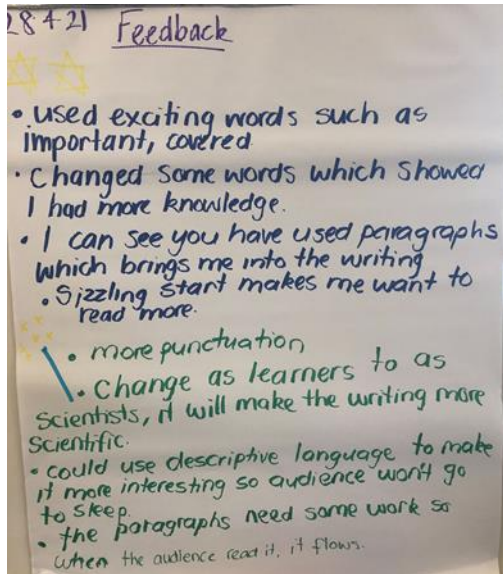 28.4.21 Feedback
• used exciting words such as
important, covered
• Changed some words which showed
I had more knowledge.
• I can see you have used paragraphs
which brings me into the writing
• Sizzling start makes me want to
read more.
• more punctuation
• change as learners to as
Scientists, it will make the writing more
Scientific.
• could use descriptive language to make
it more interesting so audience won't go
to sleep.
• the paragraphs need some work so
when the audience read it, it flows.